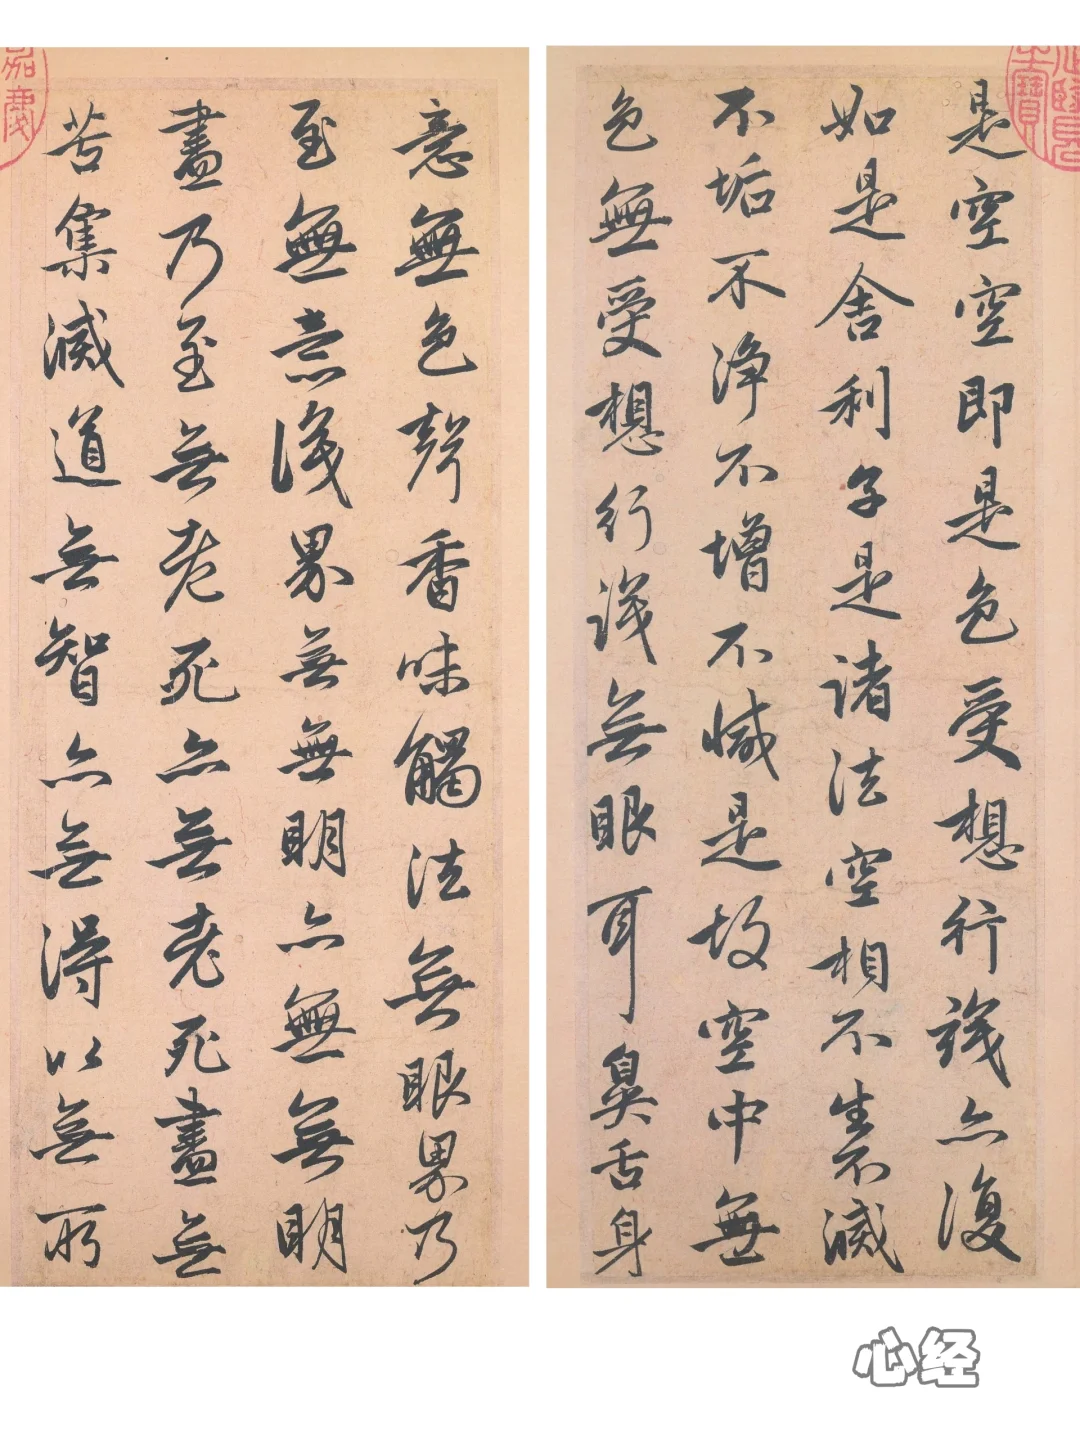 是空空即是色受想行識亦復
如是舍利子是諸法空相不生不滅
不垢不淨不增不減是故空中無
色無受想行識無眼耳鼻舌身
意無色聲香味觸法無眼界乃
至無意識界無無明亦無無明
盡乃至無老死亦無老死盡無
苦集滅道無智亦無得以無所
嘉慶
心经